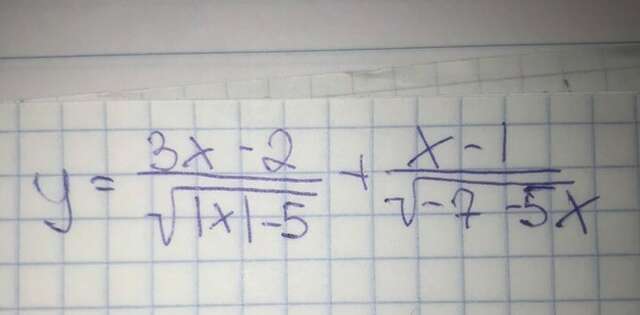 y = \frac{3x - 2}{\sqrt{|x| - 5}} + \frac{x - 1}{\sqrt{-7 - 5x}}